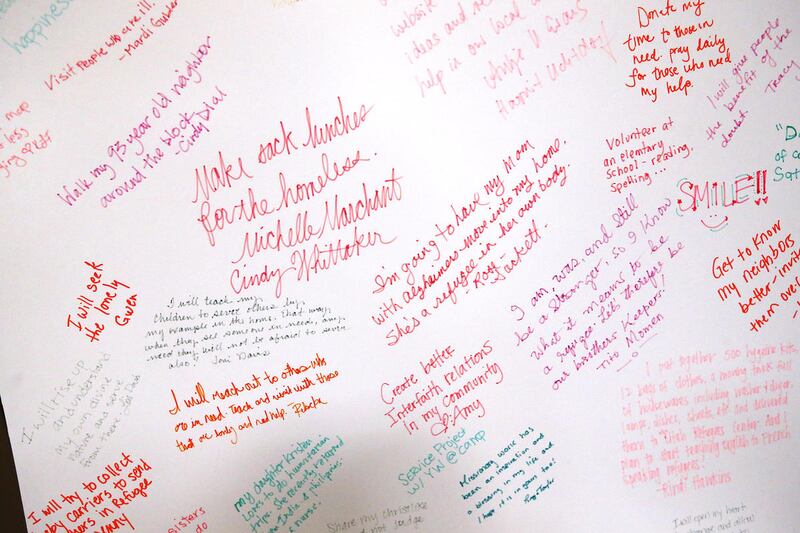 happiness
Visit People who are ill.
- Mardi
Walk my 93 year old neighbor
around the block
- Cindy Dial
Make sack lunches
for the homeless.
Michelle Marchant
Cindy Whittaker
website
ideas and
help in our local
Donate my
time to those in
need. pray daily
for those who need
my help.
I will give people
the benefit of the
doubt. Tracy
Volunteer at
an elementary
school - reading,
spelling...
SMILE!!
Get to know
my neighbors
better - invite
them over
I'm going to have my Mom
with alzheimers move into my home.
She's a refugee in her own body.
- Roxy
Sackett.
I am, was, and still
be a Stranger, so I know
What it means to be
a refugee. Let therefore be
our brothers Keepers!
Tito Momen
I will seek
the lonely
Gwen
I will teach my
children to sever others by
my example in the home. That way,
when they see someone in need, any
need they will not be afraid to sever
also! Toni Davis
I will rise up
and understand
my own divine
nature and serve
from there.
I will reach out to others who
are in need. Teach and visit with those
that are lonely and need help.
Create better
Interfaith relations
in my Community
Amy
I put together 500 hygiene kits,
12 bags of clothes, a moving truck full
of housewares including washer & dryer,
lamps, dishes, sheets, etc and delivered
them to Utah Refugee Center. And I
plan to start teaching english to French
Speaking refugees!
Hawkins
I will try to collect
baby carriers to send
in Refugee
my daughter Kristen
Loves to do humanitarian
trips. She recently returned
India & philipines.
a nurse.
Service Project
w/ YW @ Camp
Missionary work has
been an inspiration and
a blessing in my life and
I hope it is in yours too.
sisters
do
Share my
not judge
I will open my heart
and allow